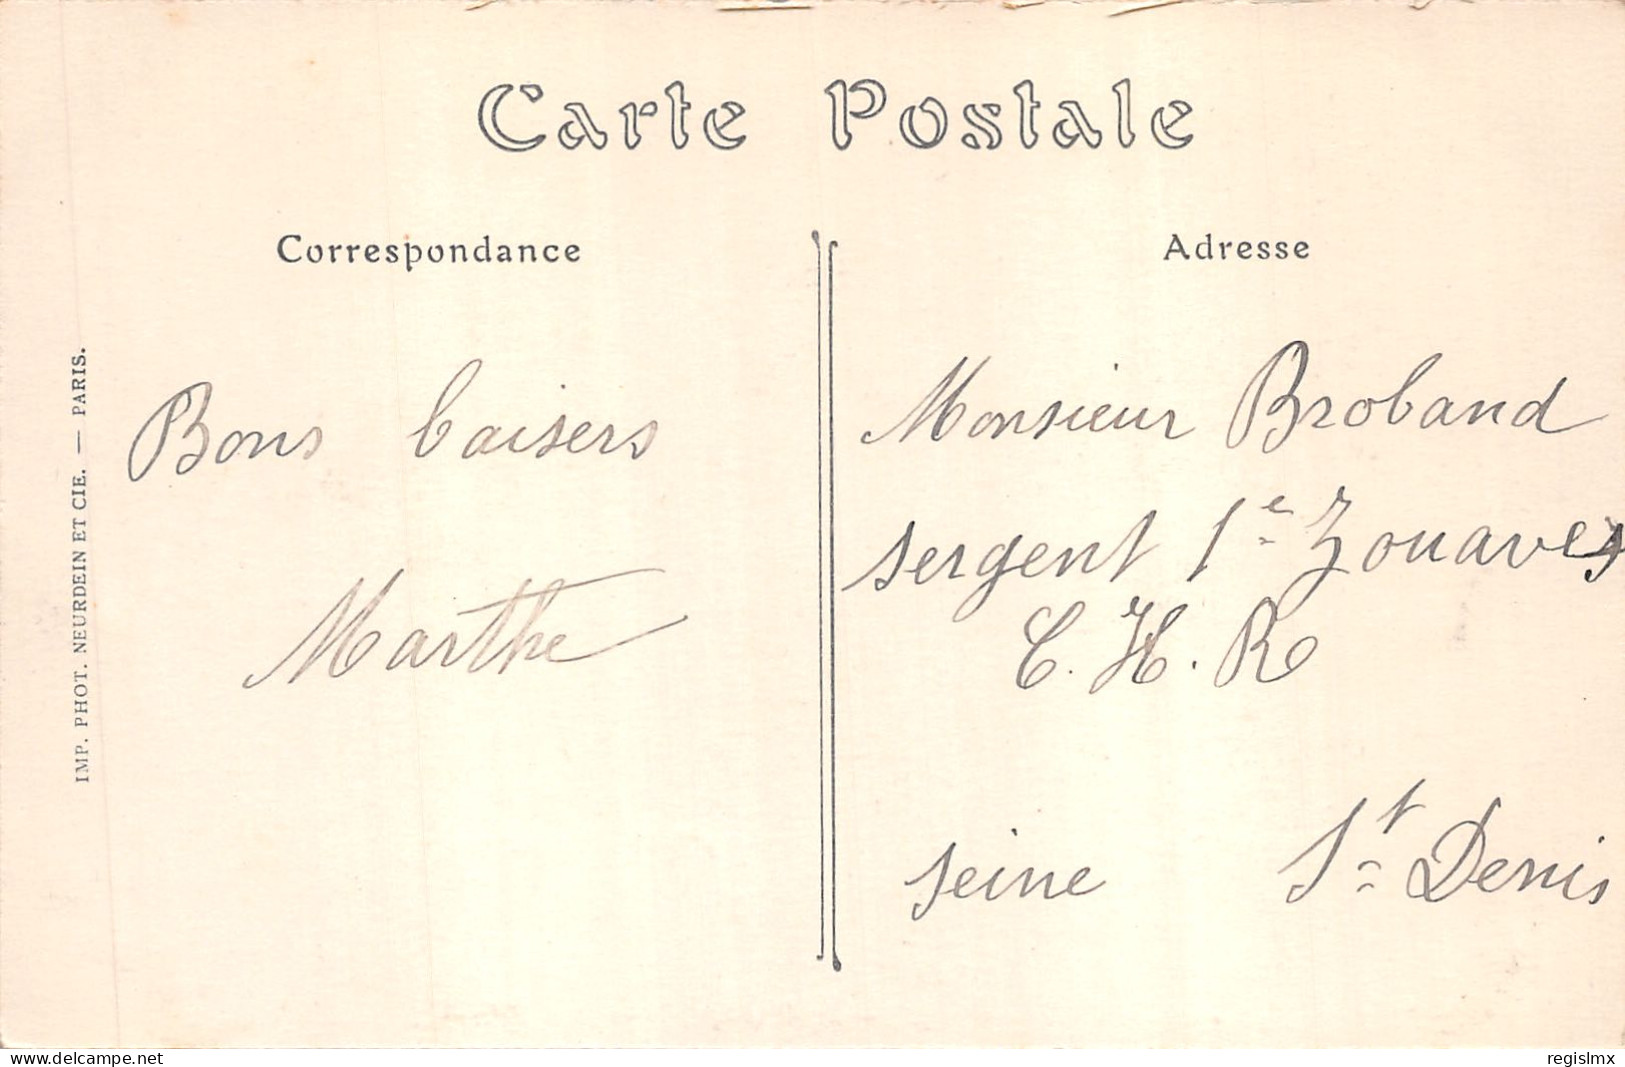 Carte Postale
Correspondance
Adresse
IMP. PHOT. NEURDEIN ET CIE. — PARIS.
Bons baisers
Marthe
Monsieur Broband
sergent 1e Zouaves
C. H. R
Seine St Denis
www.delcampe.net
regislmx